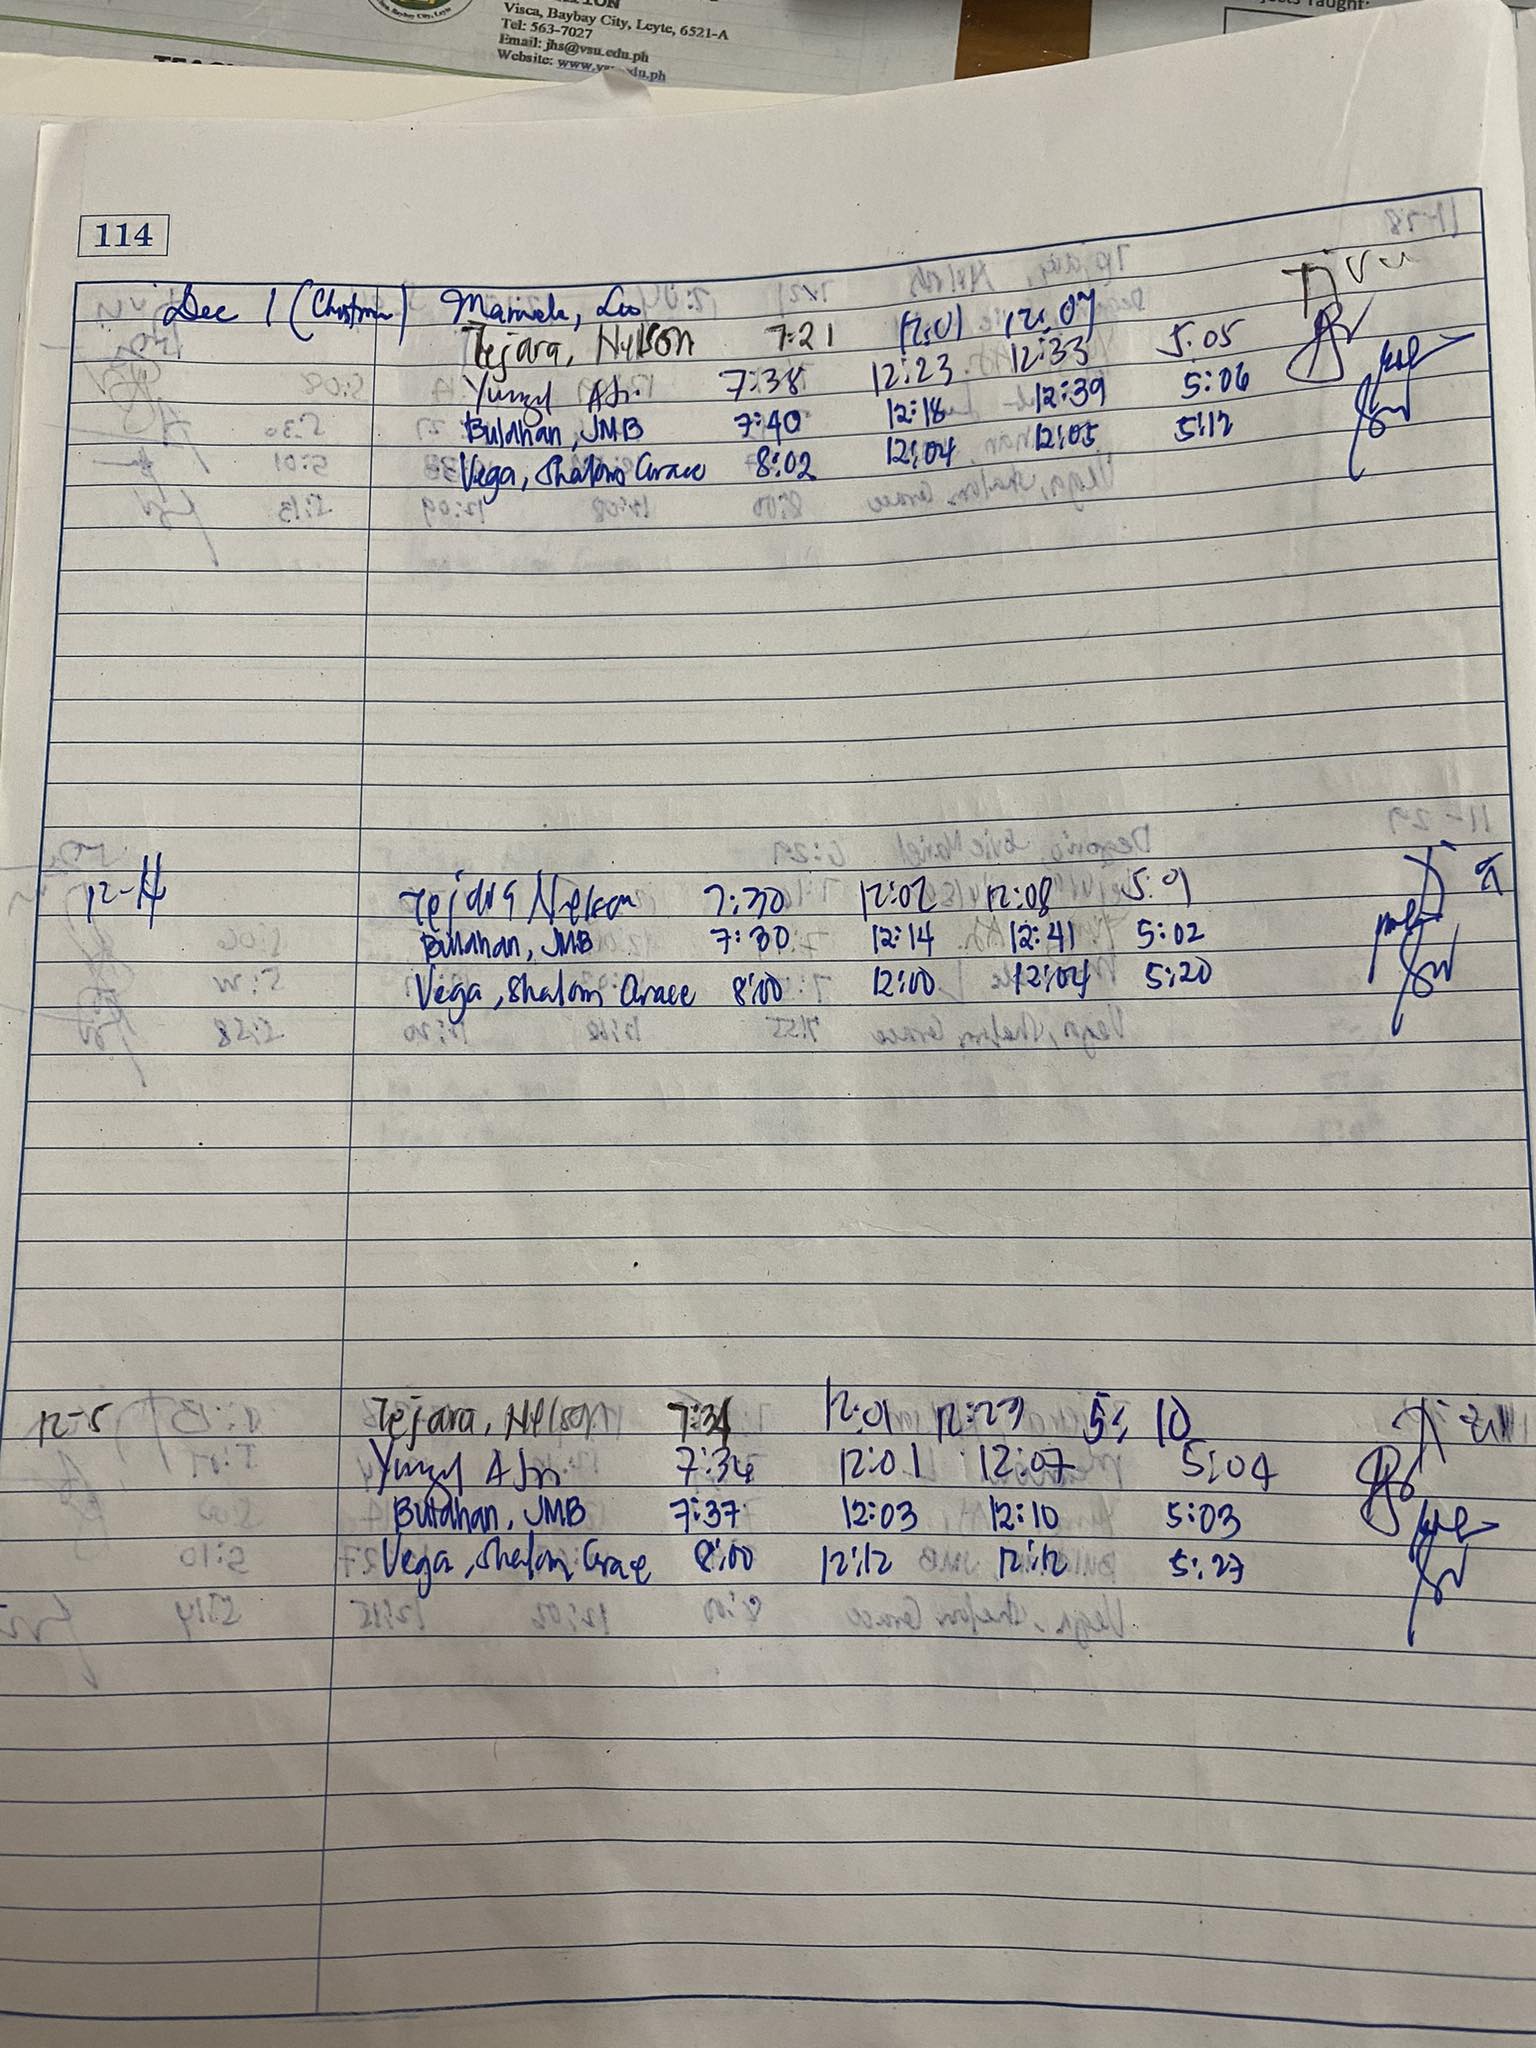 Visca, Baybay City, Leyte, 6521-A
Tel: 563-7027
Email: jhs@vsu.edu.ph
Website: www.
Taught:
114
Dec 1 ( )
Tejara, Nelson 7:21 12:01 12:07 5:05
7:38 12:23 12:33 5:06
Bulahan, JMB 7:40 12:18 12:39 5:12
Vega, Shalom Grace 8:02 12:04 12:05
12-4 Tejara Nelson 7:30 12:02 12:08 5:01
Bulahan, JMB 7:30 12:14 12:41 5:02
Vega, Shalom Grace 8:00 12:00 12:04 5:20
12-5 Tejara, Nelson 7:31 12:01 12:23 5:10
7:34 12:01 12:07 5:04
Bulahan, JMB 7:37 12:03 12:10 5:03
Vega, Shalom Grace 8:00 12:12 12:12 5:27